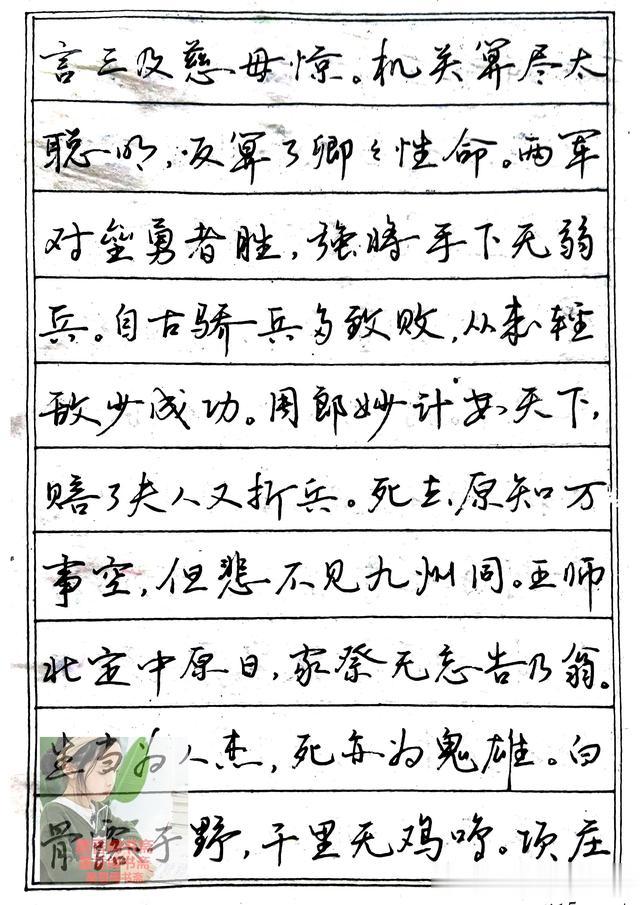 言三及慈母惊。机关算尽太
聪明，反算了卿々性命。两军
对垒勇者胜，强将手下无弱
兵。自古骄兵多致败，从来轻
敌少成功。周郎妙计安天下，
赔了夫人又折兵。死去原知万
事空，但悲不见九州同。王师
北定中原日，家祭无忘告乃翁。
生当为人杰，死亦为鬼雄。白
骨露于野，千里无鸡鸣。项庄